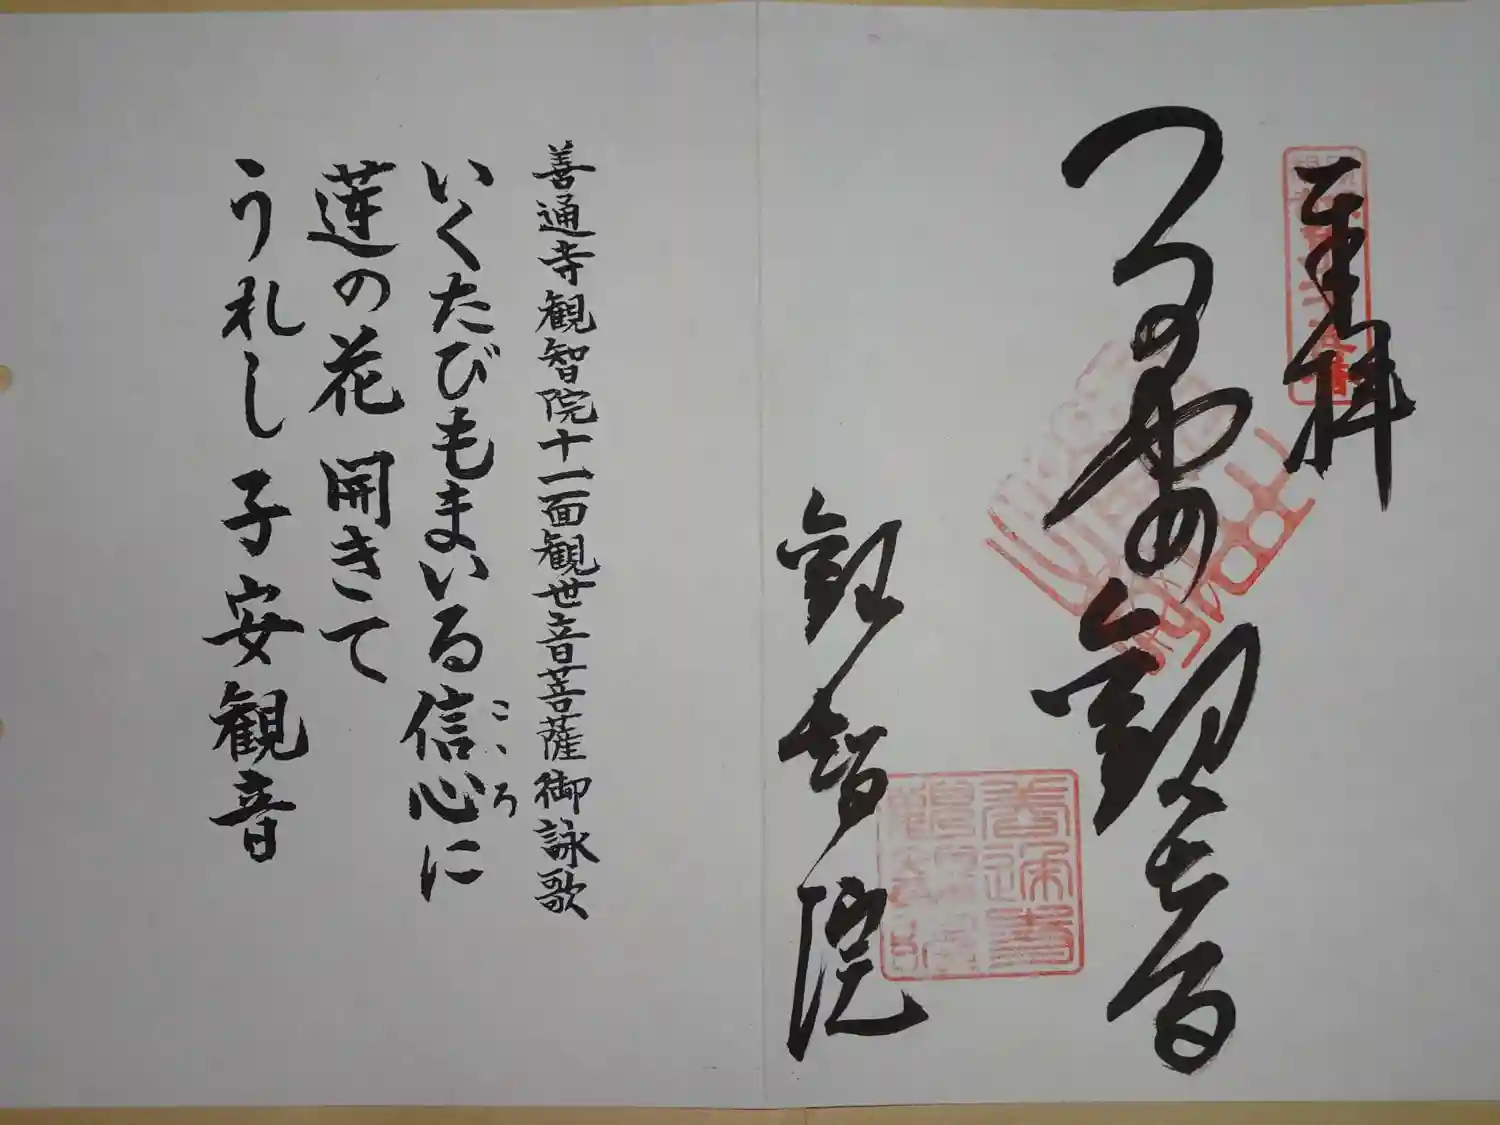 奉拝
子安観世音
観智院
善通寺
善通寺観智院十一面観世音菩薩御詠歌
いくたびもまいる信心に
こゝろ
蓮の花 開きて
うれし 子安観音